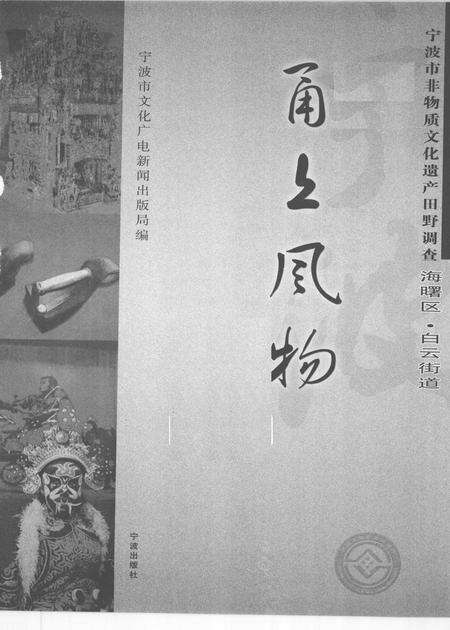 宁波市非物质文化遗产田野调查 海曙区·白云街道
甬上风物
宁波市文化广电新闻出版局编
宁波出版社